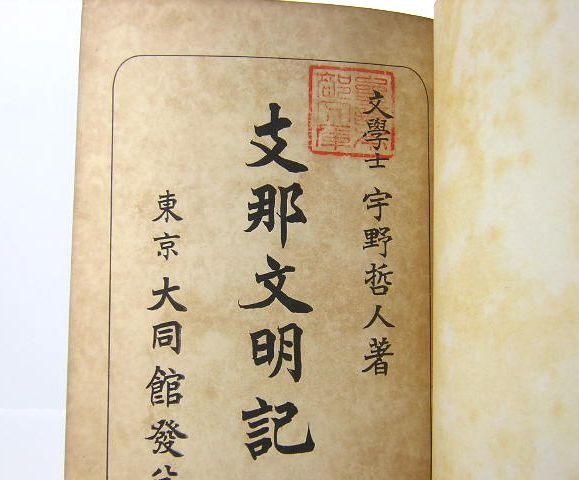 文學士 宇野哲人著
支那文明記
東京 大同館發